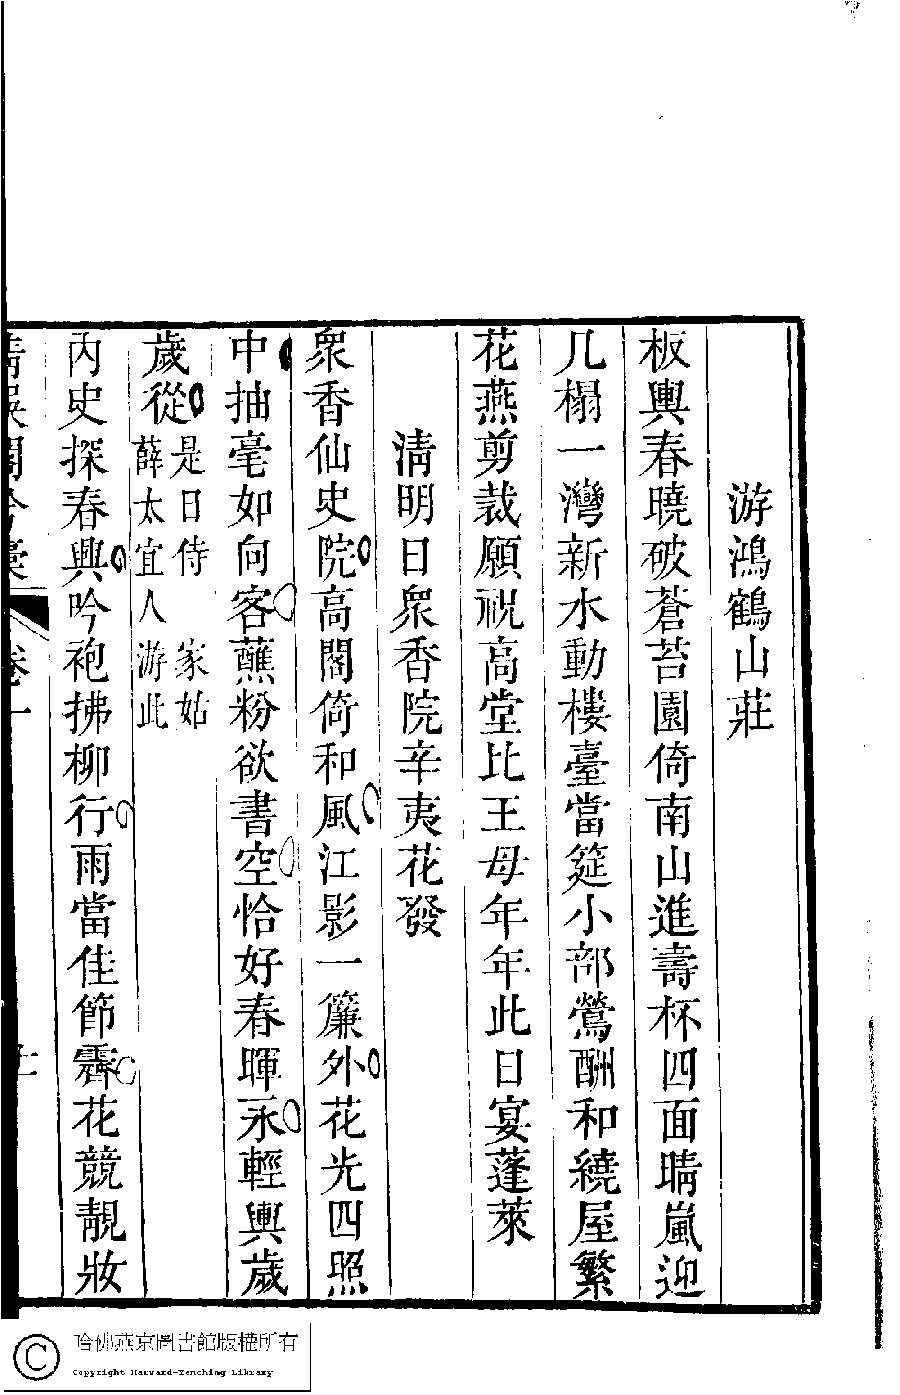 游鴻鶴山莊
板輿春曉破蒼苔園倚南山進壽杯四面晴嵐迎
几榻一灣新水動樓臺當筵小部鶯酬和繞屋繁
花燕剪裁願祝高堂比王母年年此日宴蓬萊
清明日衆香院辛夷花發
衆香仙史院高閣倚和風江影一簾外花光四照
中抽毫如向客蘸粉欲書空恰好春暉永輕輿歲
歲從是日侍 家姑
薛太宜人游此
內史探春興吟袍拂柳行雨當佳節霽花競靚妝
卷一
哈佛燕京圖書館版權所有
Copyright Harvard-Yenching Library